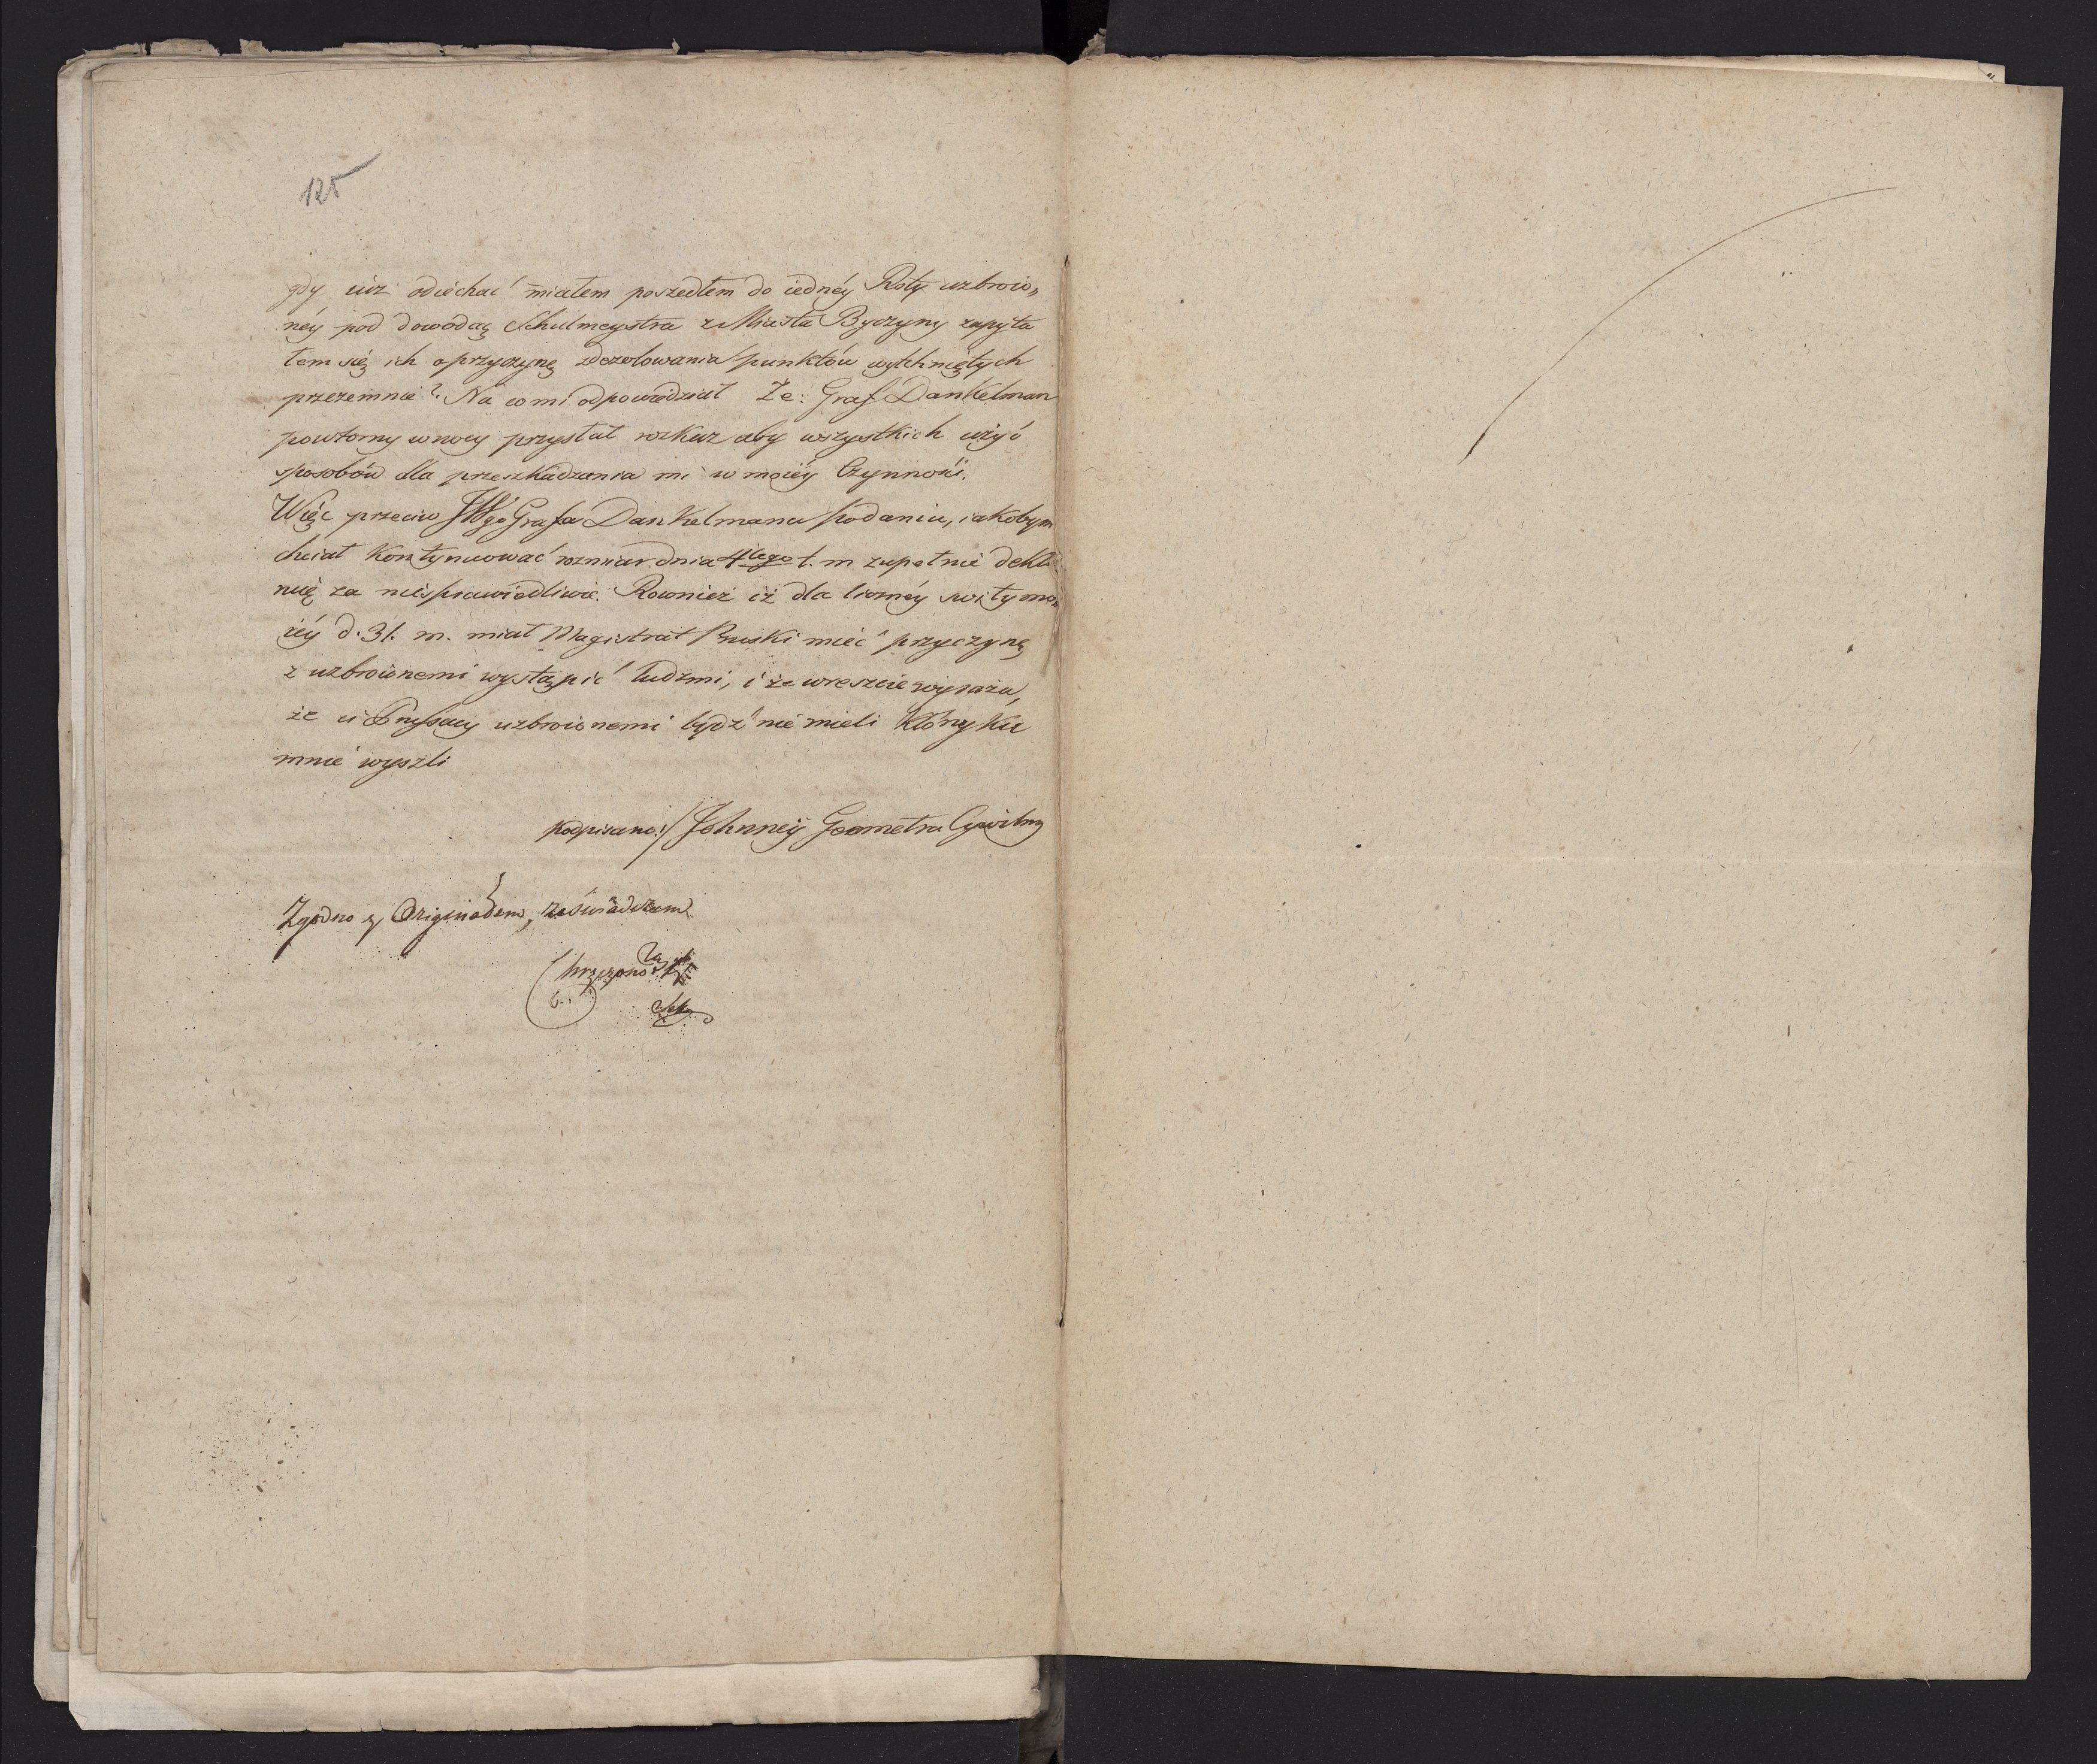 125
gdy iuż odiéchać miałem poszedłem do iednéy Roty uzbroio„
néy pod dowodzą Schulmeystra z Miasta Byczyny zapyta
łem się ich o przyczynę zdezolowania punktów wytchniętych
przezemnie? Na co mi odpowiedział Że: Graf Dankelman
powtorny w nocy przysłał rozkaz aby wszystkich użyć
sposobów dla przeszkadzania mi w moiéy Czynności.
Więc przeciw JWgo Grafa Dankelmana podaniu, iakobym
chciał kontynuować rozmiar dnia 4tego t. m zupełnie dekla
ruię za niesprawiedliwe. Rownież iż dla liczney swity mo„
iéy d. 3 t. m. miał Magistrat Pruski mieć przyczynę
z uzbroionemi wystąpić ludzmi, i że wreszcie wyraża,
że ci Prusacy uzbroionemi bydź nie mieli którzy ku
mnie wyszli
podpisano:/ Johnney Geometra Cywilny
Zgodno z Originałem, zaświadczam
Sekr